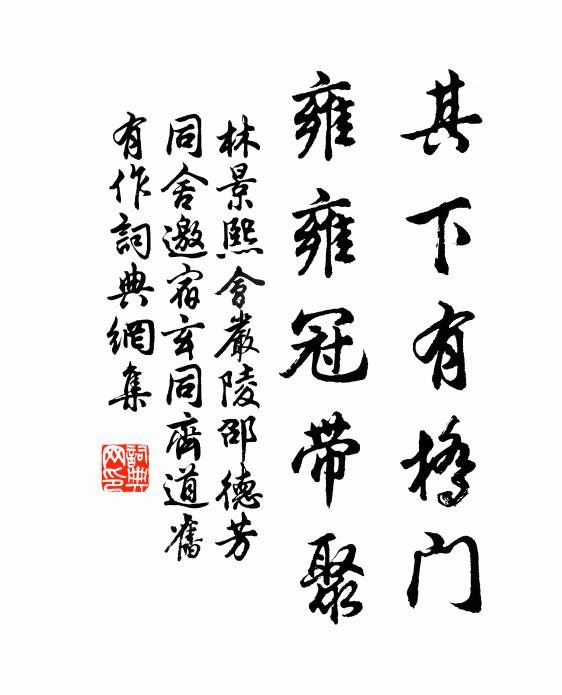 其下有橋门
雍雍冠带聚
林景熙會嚴陵邵德芳
同舍邀宿玄同齊道舊
有作詞典網集
詞典網印